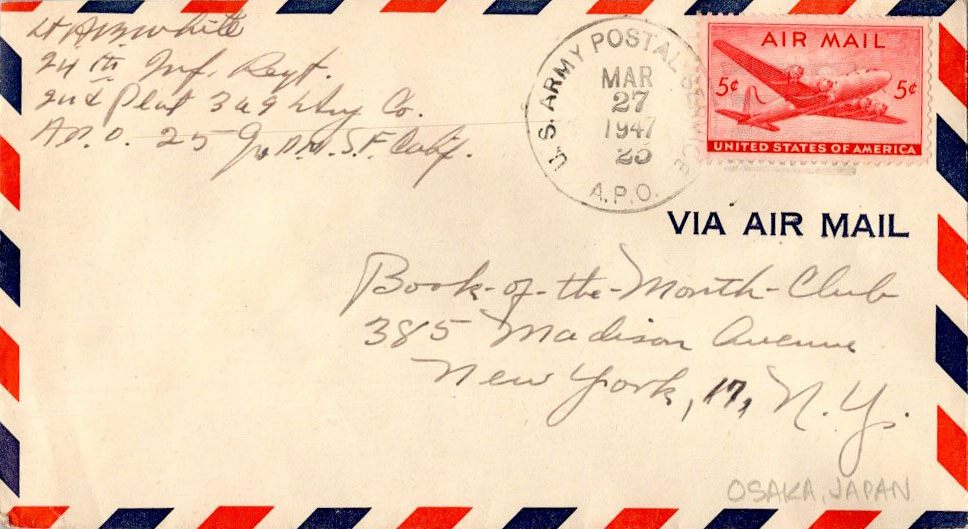 Lt A.B. White
24th Inf. Regt.
2nd Plat Hvy Co.
A.P.O. 25 S.F. Calif.
U.S. ARMY POSTAL SERVICE
MAR
27
1947
25
A.P.O.
AIR MAIL
5¢ 5¢
UNITED STATES OF AMERICA
VIA AIR MAIL
Book-of-the-Month-Club
385 Madison Avenue
New York, 17, N.Y.
OSAKA, JAPAN